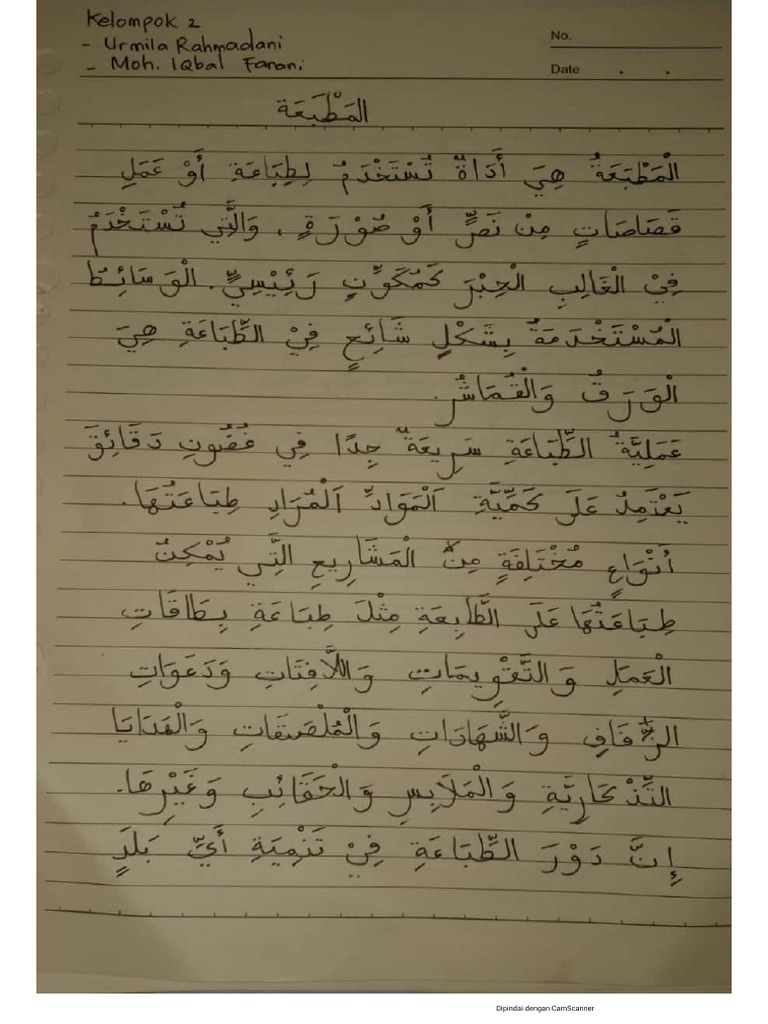 Kelompok 2
- Urmila Rahmadani
- Moh. Iqbal Fanani
No.
Date . .
المَطْبَعَة
الْمَطْبَعَةُ هِيَ أَدَاةٌ تُسْتَخْدَمُ لِطِبَاعَةِ أَوْ عَمَلِ
قَصَاصَاتٍ مِنْ نَصٍّ أَوْ صُوْرَةٍ ، وَالَّتِي تُسْتَخْدَمُ
فِيْ الْغَالِبِ الْحِبْرَ كَمُكَوِّنٍ رَئِيْسِيٍّ. الْوَسَائِطُ
الْمُسْتَخْدَمَةُ بِشَكْلٍ شَائِعٍ فِيْ الطِّبَاعَةِ هِيَ
الْوَرَقُ وَالْقُمَاشُ.
عَمَلِيَّةُ الطِّبَاعَةِ سَرِيعَةٌ جِدًا فِي غُضُونِ دَقَائِقَ
يَعْتَمِدُ عَلَى كَمِّيَّةِ اَلْمَوَادِّ اَلْمُرَادِ طِبَاعَتُهَا.
أَنْوَاعٍ مُخْتَلِفَةٍ مِنَ الْمَشَارِيعِ الَّتِي يُمْكِنُ
طِبَاعَتُهَا عَلَى الطَّابِعَةِ مِثْلَ طِبَاعَةِ بِطَاقَاتِ
الْعَمَلِ وَالتَّقْوِيمَاتِ وَاللَّافِتَاتِ وَدَعَوَاتِ
الزِّفَافِ وَالشَّهَادَاتِ وَالْمُلْصَقَاتِ وَالْهَدَايَا
التِّذْكَارِيَّةِ وَالْمَلَابِسِ وَالْحَقَائِبِ وَغَيْرِهَا.
إِنَّ دَوْرَ الطِّبَاعَةِ فِيْ تَنْمِيَةِ أَيِّ بَلَدٍ
Dipindai dengan CamScanner